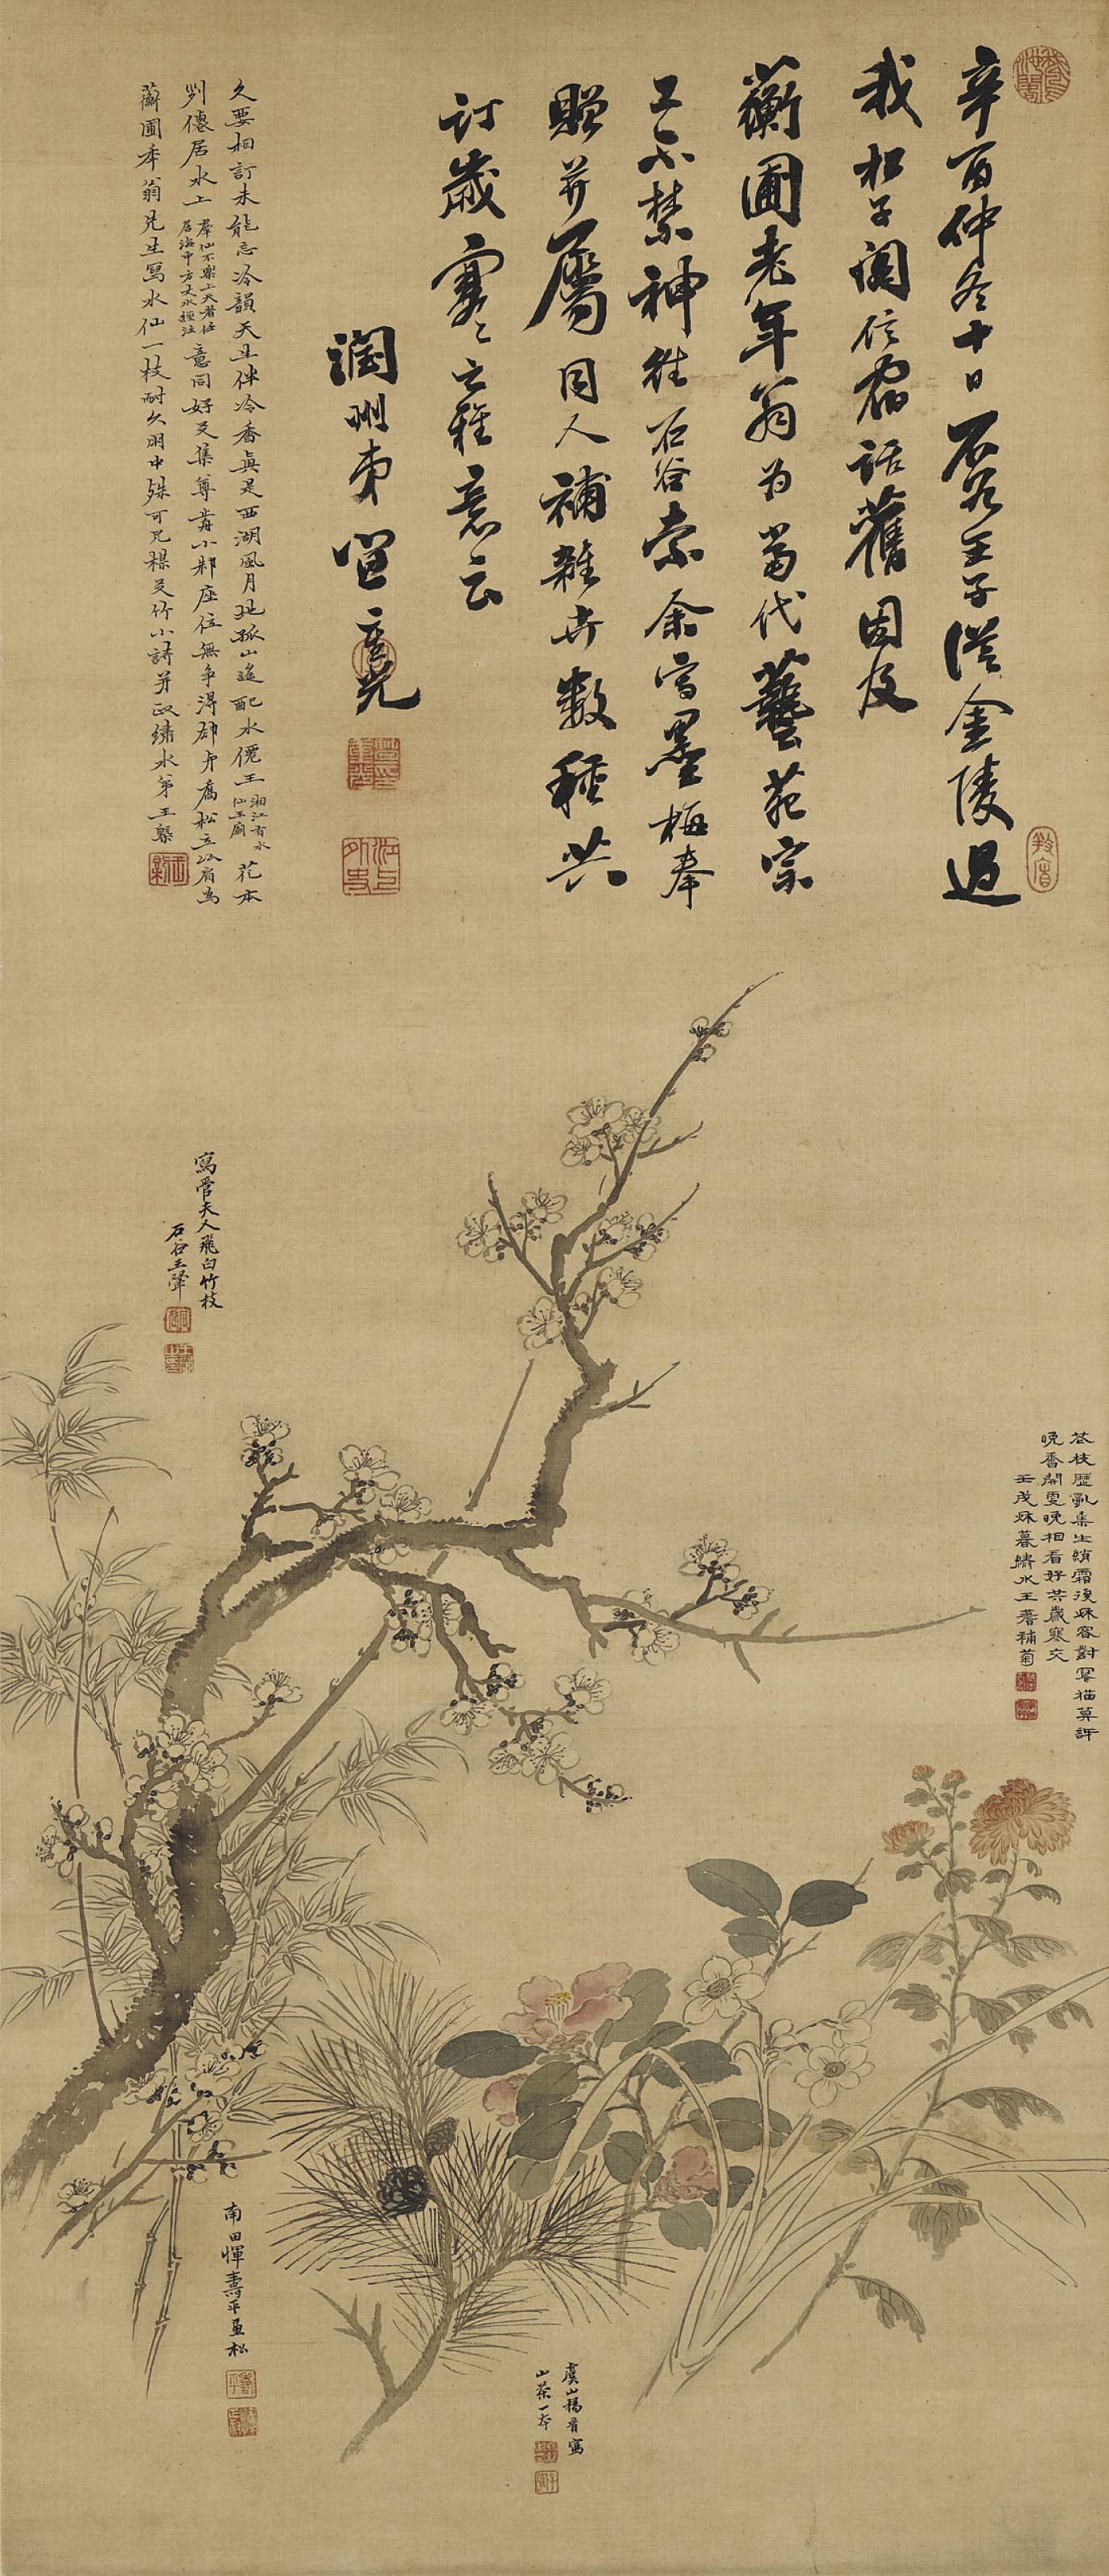 辛酉仲冬十日石谷王子從金陵過
我松子閣信宿話舊因及
蘅圃老年翁为當代藝苑宗
工不禁神往石谷索余寫墨梅奉
贈并屬同人補雜卉數種共
訂歲寒之雅意云
潤州弟笪重光
久要相訂未能忘冷韻天生伴冷香真是西湖風月地孤山遙配水僊王湘江有水仙王廟花本
判僊居水上群仙不樂上天者往居海中方丈水經注意同好友集尊前小鄰座位無爭得卻弟喬松立以肩為
蘅圃年翁兄生寫水仙一枝耐久朋中殊可兄樑友竹小詩并政繡水弟王槩
寫管夫人飛白竹枝
石谷王翬
花枝歷亂集生綃霜後秋容對冩描莫訝
晚香開更晚相看好共歲寒交
壬戌秋暮繡水王蓍補菊
南田惲壽平画松
虞山楊晉寫
山茶一本